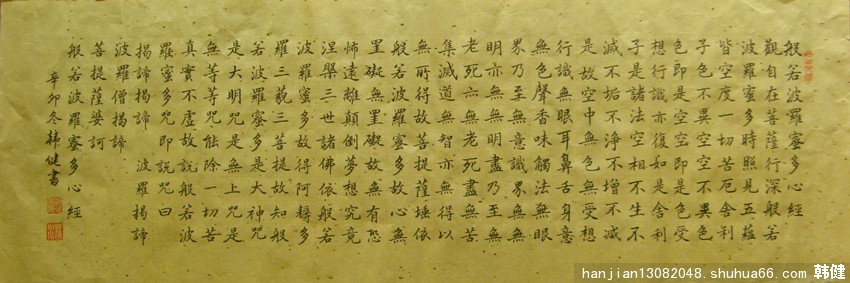 般若波羅蜜多心經
觀自在菩薩行深般若
波羅蜜多時照見五蘊
皆空度一切苦厄舍利
子色不異空空不異色
色即是空空即是色受
想行識亦復如是舍利
子是諸法空相不生不
滅不垢不淨不增不減
是故空中無色無受想
行識無眼耳鼻舌身意
無色聲香味觸法無眼
界乃至無意識界無無
明亦無無明盡乃至無
老死亦無老死盡無苦
集滅道無智亦無得以
無所得故菩提薩埵依
般若波羅蜜多故心無
罣礙無罣礙故無有恐
怖遠離顛倒夢想究竟
涅槃三世諸佛依般若
波羅蜜多故得阿耨多
羅三藐三菩提故知般
若波羅蜜多是大神咒
是大明咒是無上咒是
無等等咒能除一切苦
真實不虛故說般若波
羅蜜多咒即說咒曰
揭諦揭諦 波羅揭諦
波羅僧揭諦
菩提薩婆訶
般若波羅蜜多心經
辛卯冬韩健書
hanjian13082048.shuhua66.com 韩健